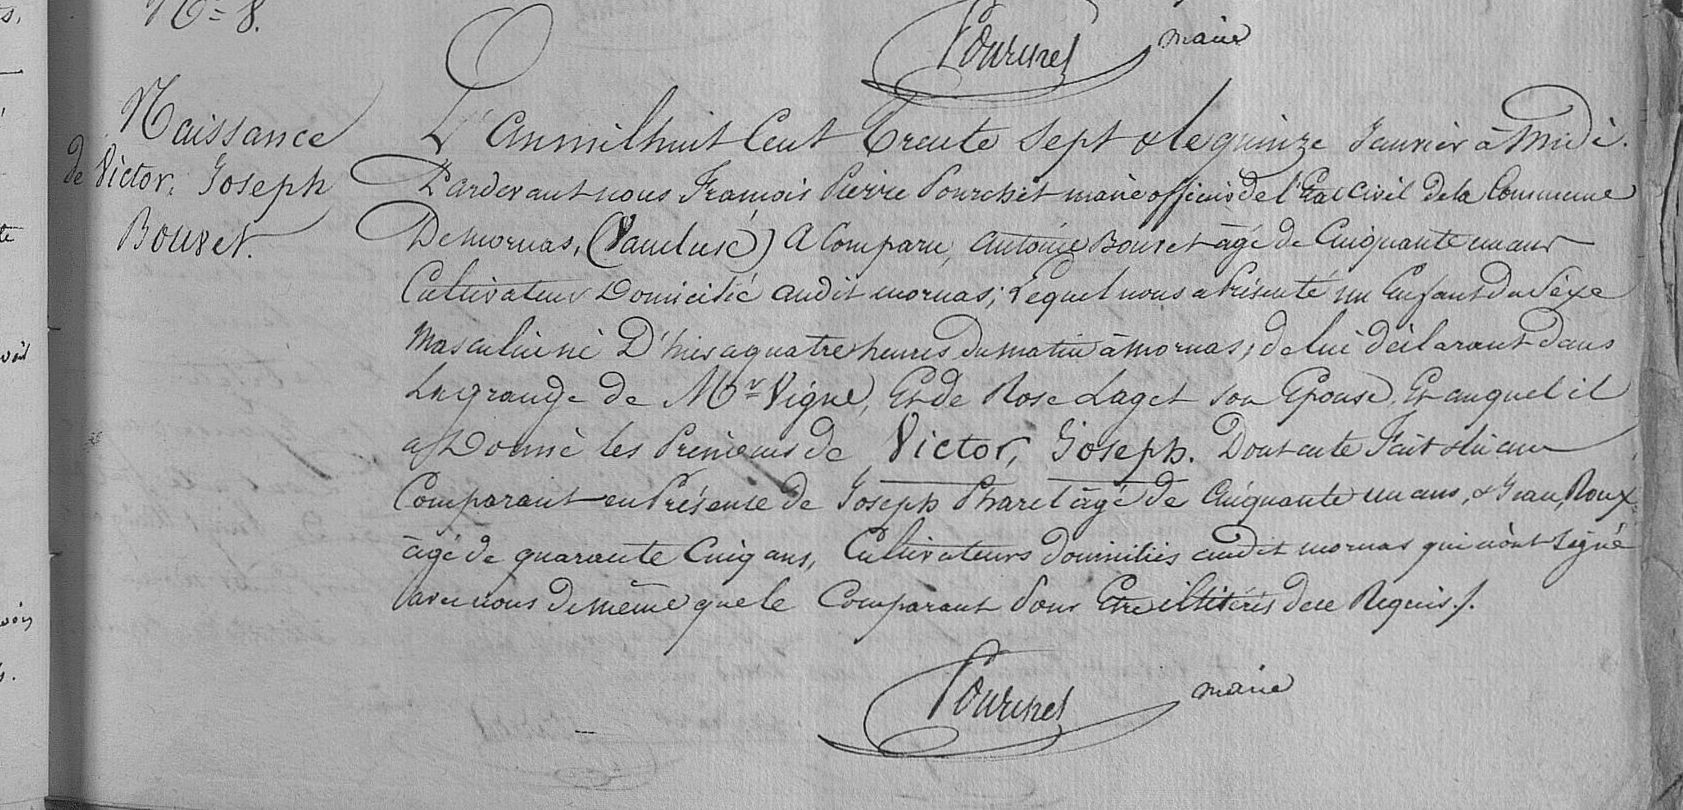 N.º 8.
Pourchet maire
Naissance
de Victor, Joseph
Bouvet.
L'an mil huit Cent Trente Sept & le quinze Janvier à Midi.
Pardevant nous François Pierre Pourchet maire officier de l'Etat Civil de la Commune
De mornas, (Vaucluse) A Comparu, Antoine Bouvet âgé de Cinquante un ans
Cultivateur Domicilié audit mornas; Lequel nous a Présenté un Enfant du Sexe
Masculin né D'hier a quatre heures du matin à mornas; de lui déclarant dans
La grange de Mr Vigne, Et de Rose Laget son Epouse, Et auquel il
a Donné les Prénoms de Victor, Joseph. Dont acte Fait & lu au
Comparant en Présence de Joseph Pharel âgé de Cinquante un ans, & Jean Roux
âgé de quarante Cinq ans, Cultivateurs domiciliés audit mornas qui n'ont Signé
avec nous de même que le Comparant Pour Etre illitérés de ce Requis./.
Pourchet maire